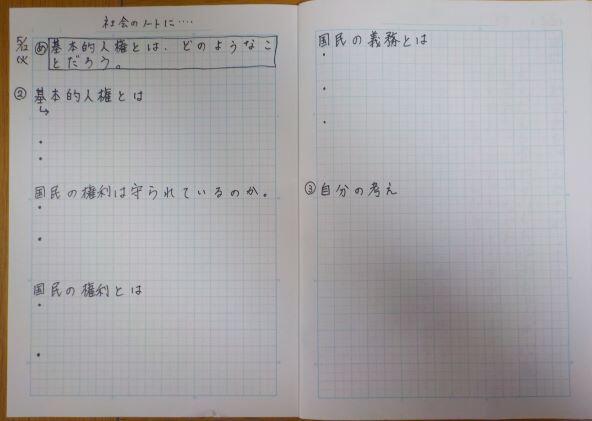 社会のノートに‥‥
5/12
(火)
め 基本的人権とは、どのようなこ
とだろう。
② 基本的人権とは
↳
・
・
国民の権利は守られているのか。
・
・
国民の権利とは
・
・
国民の義務とは
・
・
・
③ 自分の考え